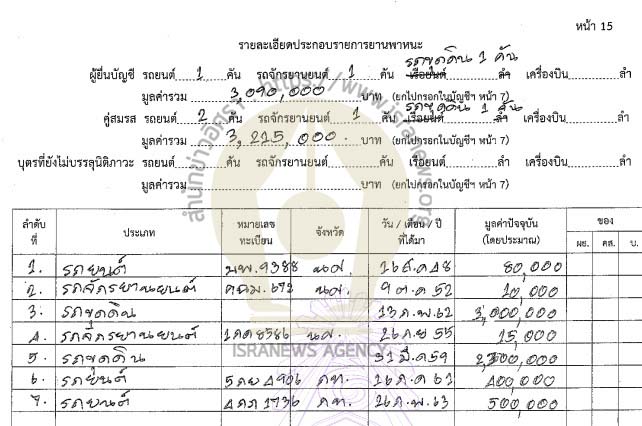 หน้า 15
รายละเอียดประกอบรายการยานพาหนะ
ผู้ยื่นบัญชี รถยนต์ 1 คัน รถจักรยานยนต์ 1 คัน รถขุดดิน 1 คัน เรือยนต์ ลำ เครื่องบิน ลำ
มูลค่ารวม 3,090,000 บาท (ยกไปกรอกในบัญชีฯ หน้า 7)
คู่สมรส รถยนต์ 2 คัน รถจักรยานยนต์ 1 คัน รถขุดดิน 1 คัน เรือยนต์ ลำ เครื่องบิน ลำ
มูลค่ารวม 3,215,000 บาท (ยกไปกรอกในบัญชีฯ หน้า 7)
บุตรที่ยังไม่บรรลุนิติภาวะ รถยนต์ คัน รถจักรยานยนต์ คัน เรือยนต์ ลำ เครื่องบิน ลำ
มูลค่ารวม บาท (ยกไปกรอกในบัญชีฯ หน้า 7)
ลำดับที่ ประเภท หมายเลขทะเบียน จังหวัด วัน / เดือน / ปี ที่ได้มา มูลค่าปัจจุบัน (โดยประมาณ) ของ
ผย. คส. บ.
1. รถยนต์ 80,000
2. รถจักรยานยนต์ 10,000
3. รถขุดดิน 13 ก.พ. 62 3,000,000
4. รถจักรยานยนต์ 26 ก.ย 55 15,000
5. รถขุดดิน 31 มี.ค 59 2,300,000
6. รถยนต์ 400,000
7. รถยนต์ 26 ก.พ. 63 500,000
สำนักข่าวอิศรา https://www.isranews.org
ISRANEWS AGENCY